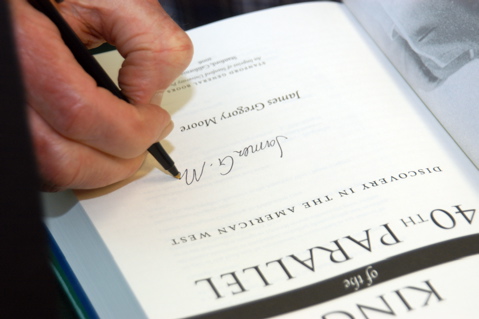 KING
of the
40TH PARALLEL
DISCOVERY IN THE AMERICAN WEST
James G. M
James Gregory Moore
STANFORD GENERAL BOOKS
An Imprint of Stanford University Press
Stanford, California
2006